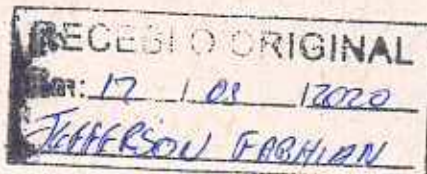 RECEBI O ORIGINAL
EM: 17 / 03 / 2020
JEFFERSON FABHIAN